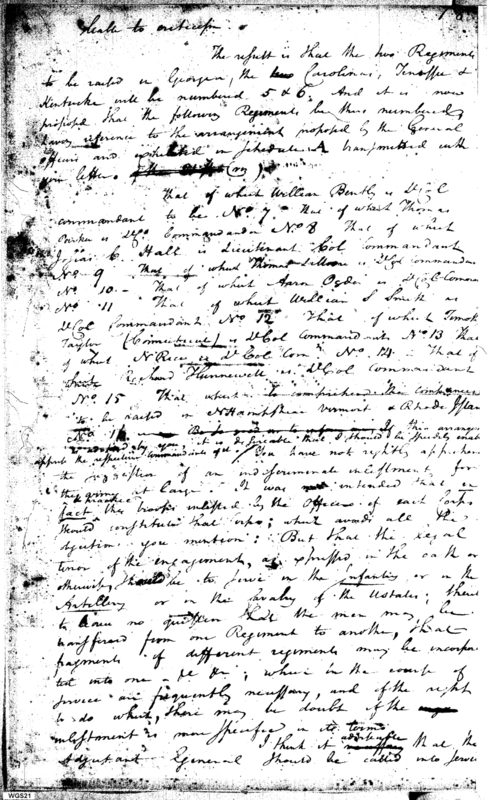 liable to criticism.
The result is that the two Regiments
to be raised in Georgia, the Carolinas, Tenessee &
Kentucke will be numbered 5 & 6. And it is now
proposed that the following Regiments be thus numbered
having reference to the arrangement proposed by the General
Officers and exhibited in Schedule A transmitted with
your letter
That of which William Bently is Lt Col
commandant to be No 7 That of which Thomas
Parker is Lt Col Commandant No 8 That of which
Josias C. Hall is Lieutenant Col Commandant
No 9 That of which Thomas is Lt Col Commandant
No 10 - That of which Aaron Ogden is Lt Col Comman
No 11 That of which William S Smith is
Lt Col Commandant No 12 That of which Timoth
Taylor (Connecticut) is Lt Col Commandant No 13 That
of which N Rice is Lt Col Com No 14 - That of
which Richard Hunnewell is Lt Col Commandant
No 15 That which is to comprehend the companies
to be raised in N Hampshire Vermont & Rhode Islan
No 16 If this arrange
you it is desirable that I should be speedily enab
apprise the respective Commandants of it. You have not rightly apprehen
the of an indiscriminate enlistment, for
at large. It was intended that in
fact the troops enlisted by the Officers of each Corps
should constitute that corps; which avoids all the
you mention: But that the legal
tenor of the engagements, as expressed in the oath or
otherwise, should be to serve in the infantry or in the
Artillery or in the cavalry of the U States; there
to leave no question that the men may be
transferred from one Regiment to another, that
fragments of different regiments may be incorpo
ted into one - &c &c; which in the course of
service are frequently necessary, and of the right
to do which, there may be doubt if the
enlistment is more specific in its terms
I think it adviseable that the
Adjutant General should be called into service
WGS21